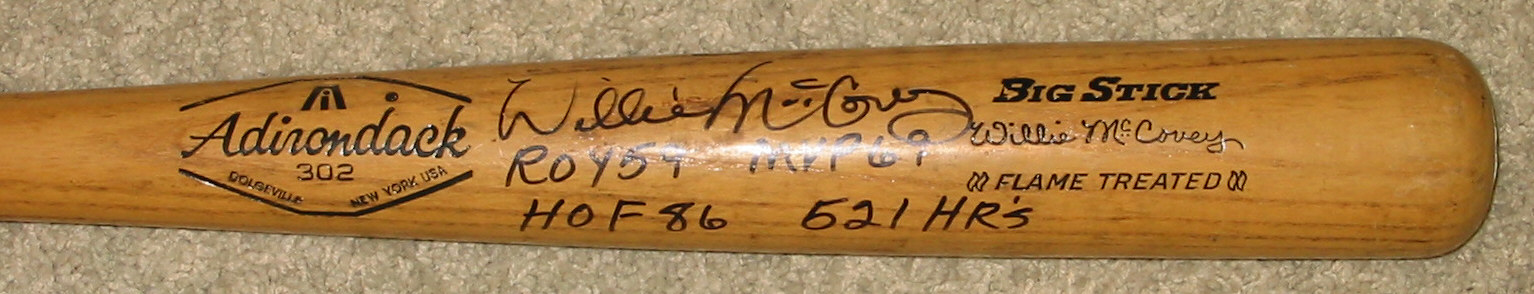 Adirondack
302
DOLGEVILLE NEW YORK USA
Willie McCovey
ROY 59 MVP 69
HOF 86 521 HR's
BIG STICK
Willie McCovey
FLAME TREATED